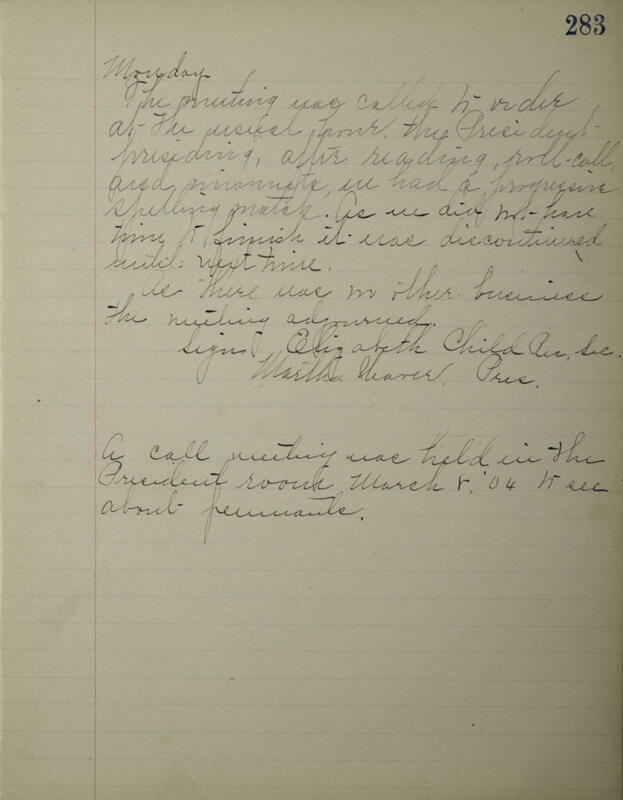 283
Monday
The meeting was called to order
at the usual hour, the President
presiding, after reading, roll-call,
and minunets, we had a progressive
spelling match. As we did not have
time to finish it was discontinued
until next time.
As there was no other business
the meeting adjourned.
Signed Elizabeth Child Rec. Sec.
Martha Weaver, Pres.
A call meeting was held in the
President room March 8, '04 to see
about pennants.